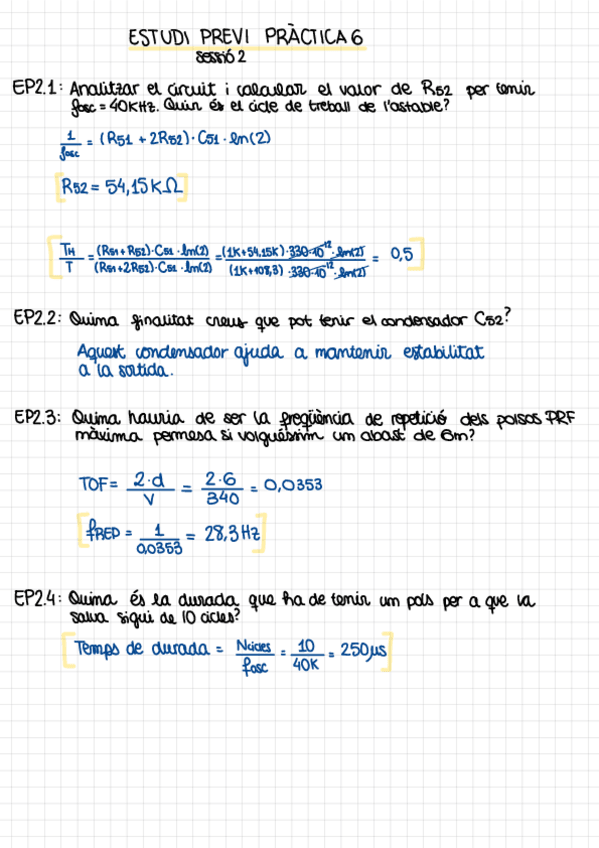 ESTUDI PREVI PRÀCTICA 6
SESSIÓ 2
EP2.1: Analitzar el circuit i calcular el valor de R52 per tenir
fosc = 40KHz. Quin és el cicle de treball de l'astable?
1/fosc = (R51 + 2R52) · C51 · ln(2)
R52 = 54,15 KΩ
TH/T = (R51+R52)·C51·ln(2)/(R51+2R52)·C51·ln(2) = (1K+54,15K)·330·10^-12·ln(2)/(1K+108,3)·330·10^-12·ln(2) = 0,5
EP2.2: Quina finalitat creus que pot tenir el condensador C52?
Aquest condensador ajuda a mantenir estabilitat
a la sortida.
EP2.3: Quina hauria de ser la freqüència de repetició dels polsos PRF
màxima permesa si volguéssim un abast de 6m?
TOF = 2·d/V = 2·6/340 = 0,0353
fREP = 1/0,0353 = 28,3 Hz
EP2.4: Quina és la durada que ha de tenir un pols per a que la
salva sigui de 10 cicles?
Temps de durada = Ncicles/fosc = 10/40K = 250µs